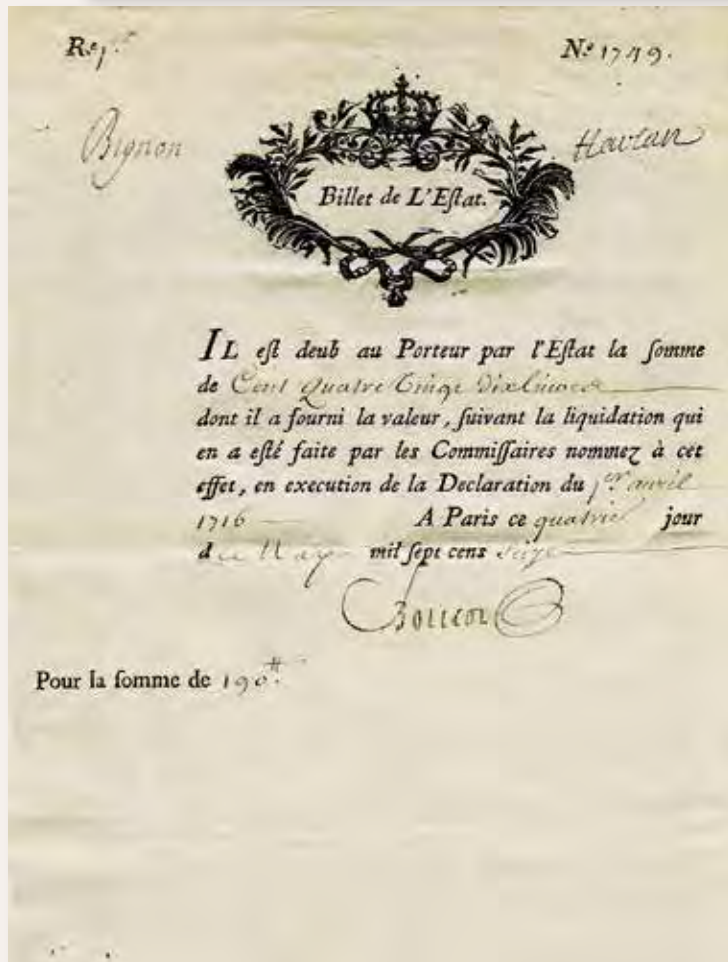 Reg.té N.º 1749.
Bignon Havran
Billet de L'Eſtat.
IL eſt deub au Porteur par l'Eſtat la ſomme
de Cent quatre vingt dix livres
dont il a fourni la valeur, ſuivant la liquidation qui
en a eſté faite par les Commiſſaires nommez à cet
effet, en execution de la Declaration du p.er avril
1716 A Paris ce quatrie jour
de May mil ſept cens ſeize
Boucot
Pour la ſomme de 190.ᵗᵗ